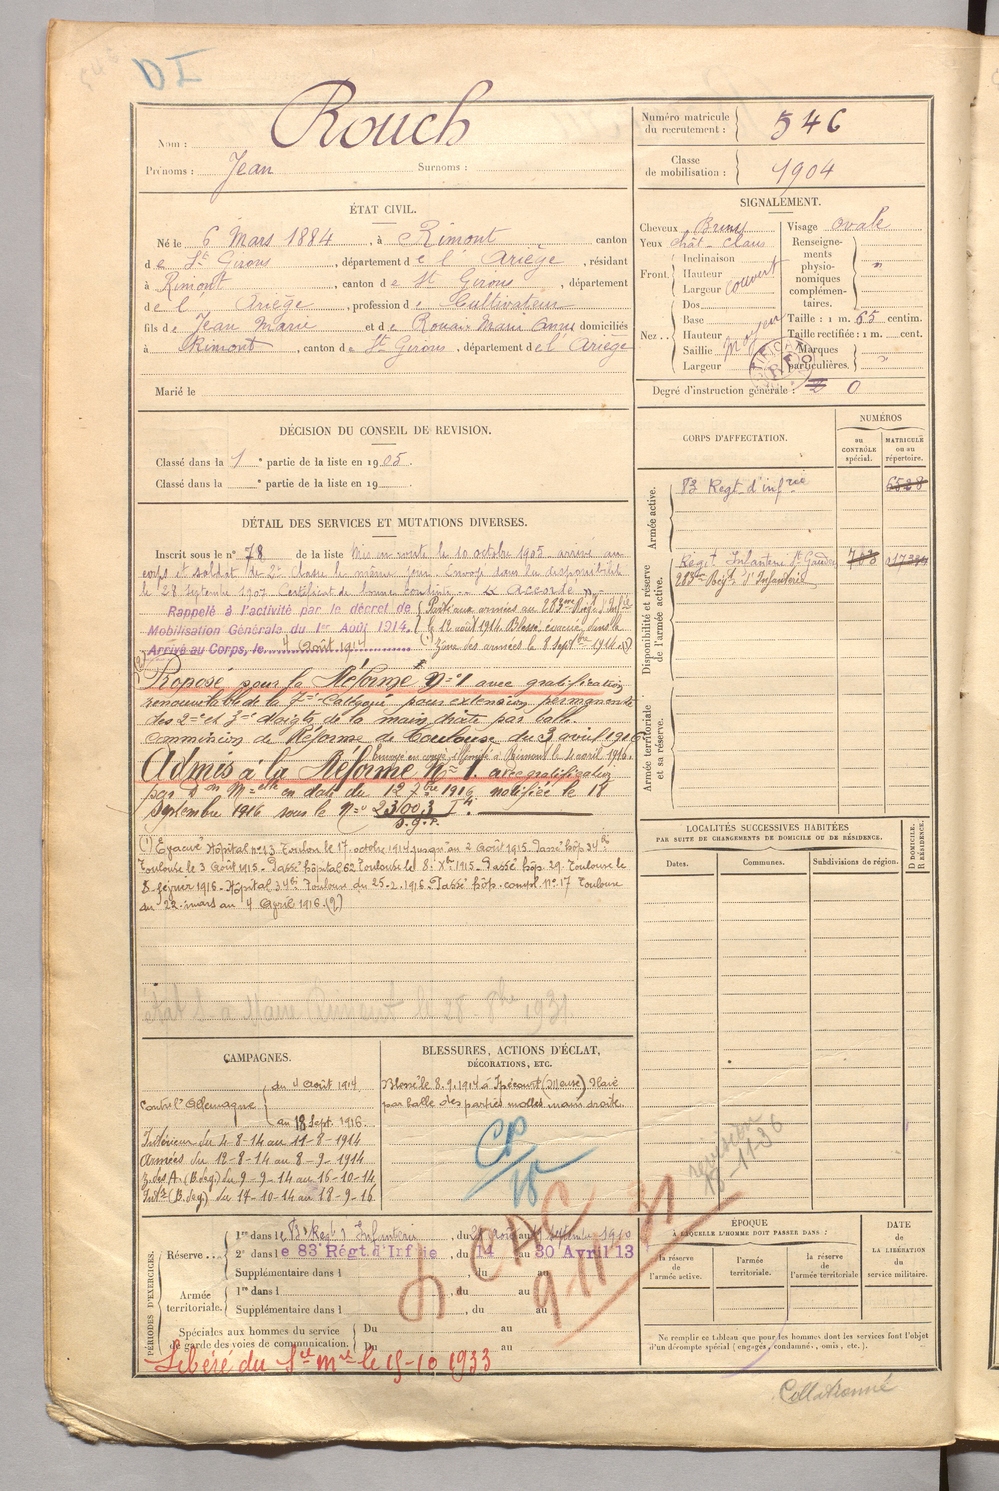 D I
Nom : Rouch
Prénoms : Jean Surnoms :
Numéro matricule du recrutement : 546
Classe de mobilisation : 1904
ÉTAT CIVIL.
Né le 6 Mars 1884, à Rimont canton
de St Girons, département de l'Ariège, résidant
à Rimont, canton de St Girons, département
de l'Ariège, profession de Cultivateur
fils de Jean Marie et de Rouaix Marie Anne domiciliés
à Rimont, canton de St Girons, département de l'Ariège
Marié le
SIGNALEMENT.
Cheveux Bruns Visage ovale
Yeux chât. clairs Renseignements physionomiques complémentaires. "
Front. Inclinaison
Hauteur
Largeur couvert
Nez.. Dos
Base
Hauteur moyen
Saillie
Largeur
Taille : 1 m. 65 centim.
Taille rectifiée : 1 m. cent.
Marques particulières. "
Degré d'instruction générale : 0
DÉCISION DU CONSEIL DE REVISION.
Classé dans la 1 e partie de la liste en 1905.
Classé dans la e partie de la liste en 19
DÉTAIL DES SERVICES ET MUTATIONS DIVERSES.
Inscrit sous le n° 78 de la liste Mis en route le 10 octobre 1905 arrivé au
corps et soldat de 2e classe le même jour. Envoyé dans la disponibilité
le 28 Septembre 1907 Certificat de bonne conduite "Accordé".
Rappelé à l'activité par le décret de
Mobilisation Générale du 1er Août 1914.
Arrivé au Corps, le 4 Août 1914
Parti aux armées au 283me Régt d'Infie
le 12 août 1914. Blessé, évacué, dans la
Zone des armées le 8 Septbre 1914 (1)
Proposé pour la Réforme N° 1 avec gratification
renouvelable de la 7me Catégorie pour extension permanente
des 2me et 3me doigts de la main droite par balle.
Commission de Réforme de Toulouse du 3 avril 1916
Envoyé en congé illimité à Rimont le 4 avril 1916.
Admis à la Réforme N° 1. avec gratification
par Don Melle en date du 12 7bre 1916, notifiée le 18
Septembre 1916 sous le N° 23003 I
(1) Evacué Hôpital n° 13 Toulon le 17 octobre 1914 jusqu'au 2 Août 1915. Passé hôp 34 bis
Toulouse le 3 Août 1915. Passé hôpital 62 Toulouse le 8 Xbre 1915. Passé hôp. 29 Toulouse le
8 février 1916. Hôpital 34 bis Toulouse du 25-2-1916. Passé hôp. compl. n° 17 Toulouse
du 22 mars au 4 Avril 1916. (2)
Maire Rimont le 28 8bre 1931
CORPS D'AFFECTATION.
NUMÉROS
au CONTRÔLE spécial.
MATRICULE ou au répertoire.
Armée active.
83 Régt d'infrie 6528
Disponibilité et réserve de l'armée active.
Régt Infanterie St Gaudens
283e Régt d'Infanterie
Armée territoriale et sa réserve.
LOCALITÉS SUCCESSIVES HABITÉES
PAR SUITE DE CHANGEMENTS DE DOMICILE OU DE RÉSIDENCE.
Dates. Communes. Subdivisions de région.
D DOMICILE. R RÉSIDENCE.
CAMPAGNES.
Contre l'Allemagne du 4 Août 1914
au 18 Sept. 1916.
Intérieur du 4-8-14 au 11-8-1914
Armées du 12-8-14 au 8-9-1914
Z. des A. (B. de g.) du 9-9-14 au 16-10-14
Intr (B. de g.) du 17-10-14 au 18-9-16
BLESSURES, ACTIONS D'ÉCLAT,
DÉCORATIONS, ETC.
Blessé le 8.9.1914 à Ipécourt (Meuse) Plaie
par balle des parties molles main droite.
CP
18
révision
18-11-36
PÉRIODES D'EXERCICES.
Réserve...
1re dans le 83e Régt d'Infanterie, du au 1910
2e dans le 83e Régt. d'Infie, du 14 au 30 Avril 13
Supplémentaire dans l , du au
Armée territoriale.
1re dans l , du au
Supplémentaire dans l , du au
Spéciales aux hommes du service
de garde des voies de communication.
Du au
Du au
9-11-31
Libéré du Sce mre le 15-10 1933
ÉPOQUE
À LAQUELLE L'HOMME DOIT PASSER DANS :
la réserve de l'armée active.
l'armée territoriale.
la réserve de l'armée territoriale
DATE DE LA LIBÉRATION du service militaire.
Ne remplir ce tableau que pour les hommes dont les services font l'objet
d'un décompte spécial (engagés, condamnés, omis, etc.).
Collationné